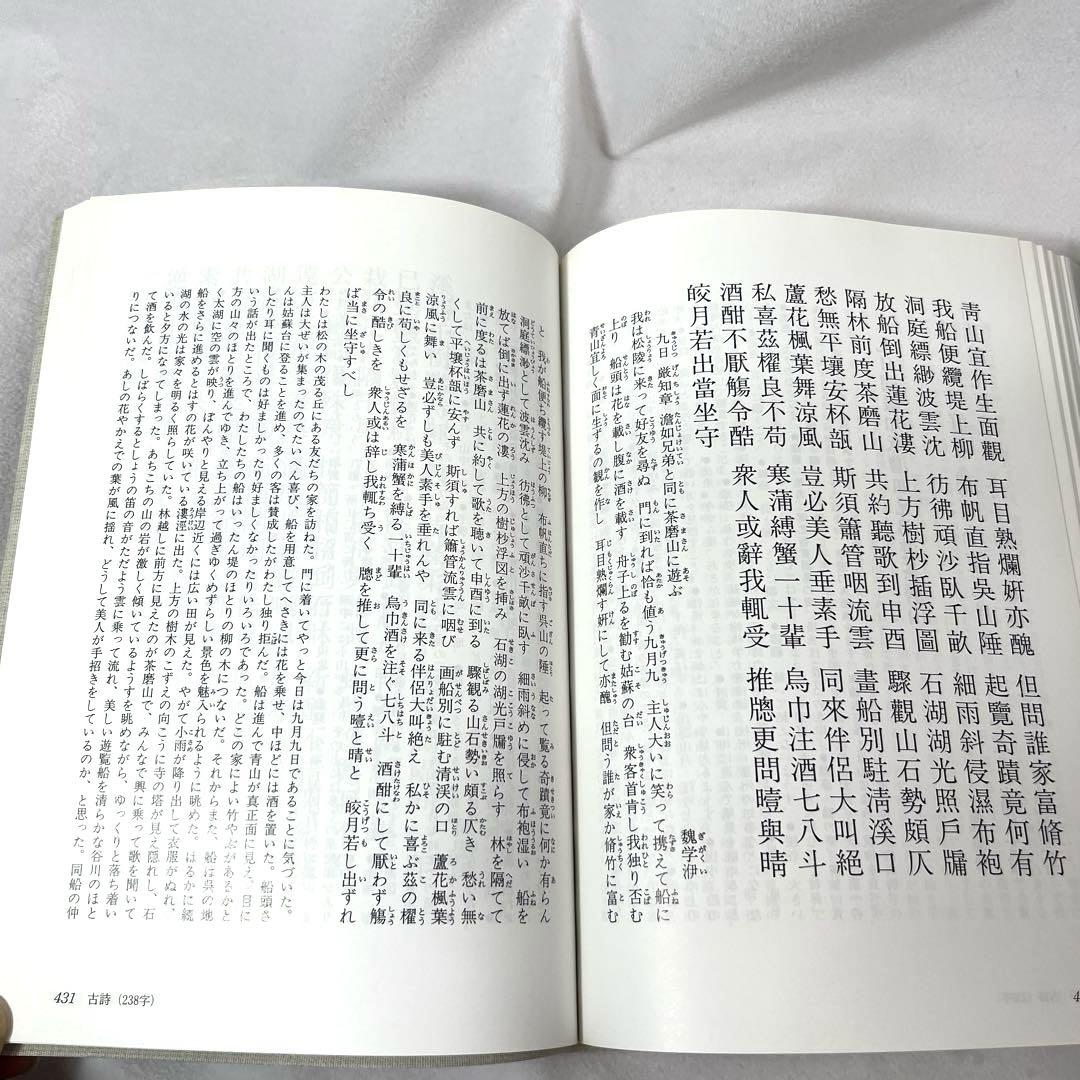 青山宜作生面觀　耳目熟爛姸亦醜　但問誰家富脩竹
我船便纜堤上柳　布帆直指吳山陲　起覽奇蹟竟何有
洞庭縹緲波雲沈　彷彿頑沙臥千畝　細雨斜侵濕布袍
放船倒出蓮花漊　上方樹杪插浮圖　石湖湖光照戶牖
隔林前度茶磨山　共約聽歌到申酉　驟觀山石勢頗仄
愁無平壤安杯瓿　斯須簫管咽流雲　畫船別駐淸溪口
蘆花楓葉舞涼風　豈必美人垂素手　同來伴侶大叫絕
私喜茲櫂良不苟　寒蒲縛蟹一十輩　烏巾注酒七八斗
酒酣不厭觴令酷　衆人或辭我輒受　推牕更問曀與晴
皎月若出當坐守
九日　厳知章　澹如兄弟と同に茶磨山に遊ぶ　魏学洢
我は松陵に来って好友を尋ぬ　門に到れば恰も値う九月九　主人大いに笑って携えて船に
上り　船頭は花を載し腹に酒を載す　舟子上るを勧む姑蘇の台　衆客首肯し我独り否む
青山宜しく面に生ずるの観を作し　耳目熟爛す姸にして亦醜　但問う誰が家か脩竹に富む
と　我が船便ち纜す堤上の柳　布帆直ちに指す呉山の陲　起って覧る奇蹟竟に何か有らん
洞庭縹緲として波雲沈み　彷彿として頑沙千畝に臥す　細雨斜めに侵して布袍湿い　船を
放てば倒に出ず蓮花の漊　上方の樹杪浮図を挿み　石湖の湖光戸牖を照らす　林を隔てて
前に度るは茶磨山　共に約して歌を聴いて申酉に到る　驟観る山石勢い頗る仄き　愁い無
くして平壌杯瓿に安んず　斯須すれば簫管流雲に咽び　画船別に駐む清渓の口　蘆花楓葉
涼風に舞い　豈必ずしも美人素手を垂れんや　同に来る伴侶大叫絶え　私かに喜ぶ茲の櫂
良に苟しくもせざるを　寒蒲蟹を縛る一十輩　烏巾酒を注ぐ七八斗　酒酣にして厭わず觴
令の酷しきを　衆人或は辞し我輒ち受く　牕を推して更に問う曀と晴と　皎月若し出ずれ
ば当に坐守すべし
わたしは松の木の茂る丘にある友だちの家を訪ねた。門に着いてやっと今日は九月九日であることに気づいた。
主人は大ぜいが集まったのでたいへん喜び、船を用意してへさきには花を乗せ、中ほどには酒を置いた。船頭さ
んは姑蘇台に登ることを進め、多くの客は賛成したがわたし独り拒んだ。船は進んで青山が真正面に見え、目に
したり耳に聞くものは好ましかったり好ましくなかったりいろいろであった。どこの家によい竹やぶがあるかと
いう話が出たところで、わたしたちの船はいったん堤のほとりの柳の木につないだ。それからまた、船は呉の地
方の山々のほとりを進んでゆき、立ち上がって過ぎゆくめずらしい景色を魅入られるように眺めた。はるかに続
く太湖に空の雲が映り、ぼんやりと見える岸辺近くには広い田が見えた。やがて小雨が降り出して衣服がぬれ、
船をさらに進めるとはすの花が咲いている漊涇に出た。上方の樹木のこずえの向こうに寺の塔が見え隠れし、石
湖の水の光は家々を明るく照らしていた。林越しに前方に見えたのが茶磨山で、みんなで興に乗って歌を聞いて
いると夕方になってしまった。あちこちの山の岩が激しく傾いているようすを眺めながら、ゆっくりと落ち着い
て酒を飲んだ。しばらくするとしょうの笛の音がただよう雲に乗って流れ、美しい遊覧船を清らかな谷川のほと
りにつないだ。あしの花やかえでの葉が風に揺れ、どうして美人が手招きをしているのか、と思った。同船の仲
431　古詩（238字）